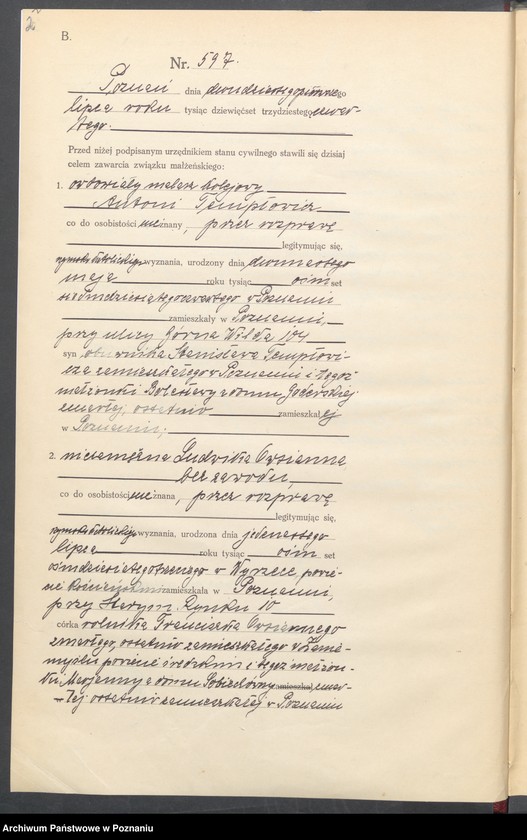 B.
Nr. 597.
Poznań dnia dwudziestego pierwszego
lipca roku tysiąc dziewięćset trzydziestego czwar-
tego.
Przed niżej podpisanym urzędnikiem stanu cywilnego stawili się dzisiaj
celem zawarcia związku małżeńskiego:
1. owdowiały malarz kolejowy
Antoni Templowicz
co do osobistości nieznany, przez rozprawę
legitymując się,
rzymsko katolickiego wyznania, urodzony dnia
maja roku tysiąc ośm set
siedmdziesiątego czwartego w Poznaniu
zamieszkały w Poznaniu,
przy ulicy Górna Wilda 104
syn Stanisława Templowi-
cza zamieszkałego w Poznaniu i tegoż
małżonki Bolesławy z domu
zmarłej, ostatnio zamieszkałej
w Poznaniu;
2. niezamężna Ludwika Owsianna,
bez zawodu,
co do osobistości nieznana, przez rozprawę
legitymując się,
rzymsko katolickiego wyznania, urodzona dnia jedenastego
lipca roku tysiąc ośm set
ośmdziesiątego trzeciego w Wyrzece, powie-
cie zamieszkała w Poznaniu,
przy Starym Rynku 10
córka rolnika Franciszka Owsiannego
zmarłego, ostatnio zamieszkałego w Zanie-
myślu powiecie średzkim i tegoż małżon-
ki Marjanny z domu zamieszkał zmar-
łej ostatnio zamieszkałej w Poznaniu
Archiwum Państwowe w Poznaniu